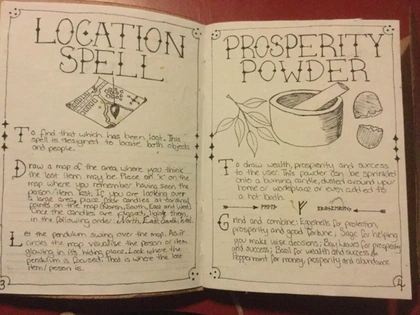 LOCATION
SPELL
To find that which has been lost. This
spell is designed to locate both objects
and people.
Draw a map of the area where you think
the lost item may be. Place an X on the
map where you remember having seen the
person/item last. If you are looking over
a large area, place four candles at cardinal
points on the map (North, South, East and West).
Once the candles are placed, light them
in the following order: North, East, South, West.
Let the pendulum swing over the map. As it
circles the map visualise the person or item
glowing in its hiding place. Look where the
pendulum is focused. That is where the lost
item/person is.
3
PROSPERITY
POWDER
To draw wealth, prosperity and success
to the user. This powder can be sprinkled
onto a burning candle, dusted around your
home or workplace or even added to
a hot bath.
Grind and combine: Eggshells for protection,
prosperity and good fortune; Sage for helping
you make wise decisions; Bay Leaves for prosperity
and success; Basil for wealth and success &
Peppermint for money, prosperity and abundance.
4